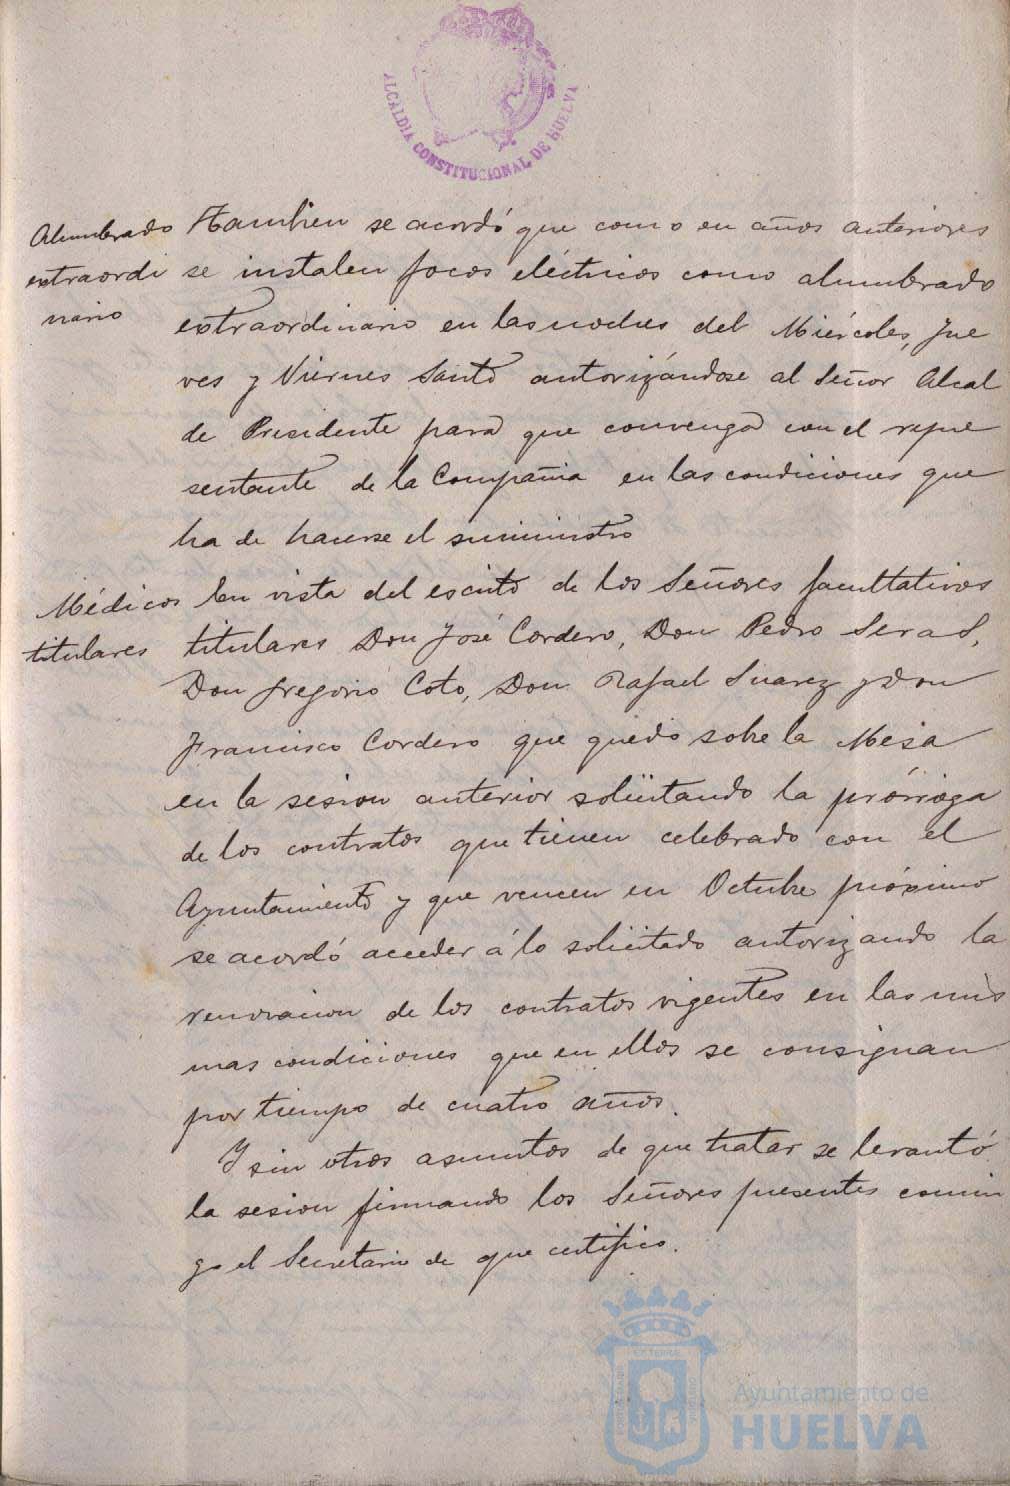 ALCALDIA CONSTITUCIONAL DE HUELVA
Alumbrado
extraordi
nario
Tambien se acordó que como en años anteriores
se instalen focos eléctricos como alumbrado
extraordinario en las noches del Miércoles, Jue
ves y Viernes Santo autorizándose al Señor Alcal
de Presidente para que convenga con el repre
sentante de la Compañia en las condiciones que
ha de hacerse el suministro
Médicos
titulares
En vista del escrito de los Señores facultativos
titulares Don José Cordero, Don Pedro Seras,
Don Gregorio Coto, Don Rafael Suarez y Don
Francisco Cordero que quedó sobre la Mesa
en la sesion anterior solicitando la prórroga
de los contratos que tienen celebrado con el
Ayuntamiento y que vencen en Octubre próximo
se acordó acceder á lo solicitado autorizando la
renovacion de los contratos vigentes en las mis
mas condiciones que en ellos se consignan
por tiempo de cuatro años.
Y sin otros asuntos de que tratar se levantó
la sesion firmando los Señores presentes conmi
go el Secretario de que certifico.
Ayuntamiento de
HUELVA